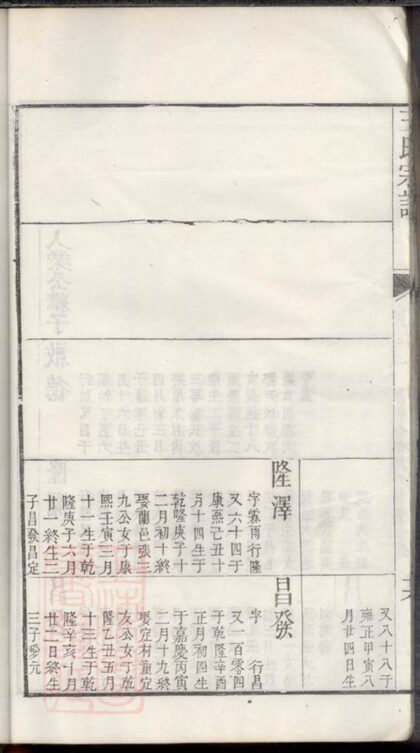 王氏宗譜
又八十八于
雍正甲寅八
月廿四日生
隆澤
字霖雨行隆
又六十四于
康熙己丑十
月十四生于
乾隆庚子十
二月初十終
娶蘭邑張三
九公女于康
熙壬寅三月
十一生于乾
隆庚子六月
廿一終生二
子昌發昌定
昌發
字 行昌
又一百零四
于乾隆辛酉
正月初四生
于嘉慶丙寅
二月十九終
娶定村童定
友公女于乾
隆乙丑五月
十三生于乾
隆辛亥十月
廿二日終生
三子愛元